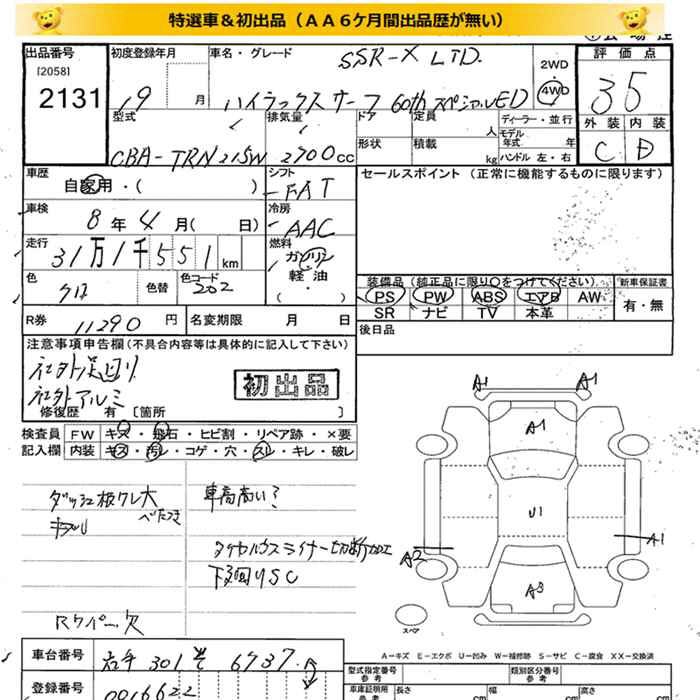 特選車＆初出品（ＡＡ６ケ月間出品歴が無い）
出品番号
[2058]
2131
初度登録年月
19 月
車名・グレード
SSR-X LTD.
ハイラックスサーフ 60th スペシャルED
2WD
4WD
評価点
3.5
外装 内装
C D
型式
CBA-TRN215W
排気量
2700 cc
ドア
形状
定員
人
積載
kg
ディーラー・並行
モデル年式 年
ハンドル 左・右
車歴
自家用・( )
シフト
FAT
セールスポイント（正常に機能するものに限ります）
車検
8年4月( 日)
冷房
AAC
走行
31万1千551km
燃料
ガソリン
軽油
( )
色
クロ
色替
色コード
202
装備品（純正品に限り○をつけてください）
PS PW ABS エアB AW
SR ナビ TV 本革
新車保証書
有・無
R券 11290円
名変期限 月 日
後日品
注意事項申告欄(不具合内容等は具体的に記入して下さい)
社外足回り
社外アルミ
初出品
修復歴 有 [箇所 ]
検査員 FW キズ・飛石・ヒビ割・リペア跡・×要
記入欄 内装 キズ・汚レ・コゲ・穴・スレ・キレ・破レ
ダッシュ板ワレ大
ベたつき
車高高い？
タイヤハウスライナー切断加工
下回りSC
Rワイパー欠
A1 A1
A1
U1
A1
A2
A3
スペア
A－キズ E－エクボ U－凹み W－補修跡 S－サビ C－腐食 XX－交換済
車台番号
岩手 301 そ 6737
登録番号
0016622
型式指定番号
類別区分番号
車庫証明用
参考
長さ cm
幅 cm
高さ cm